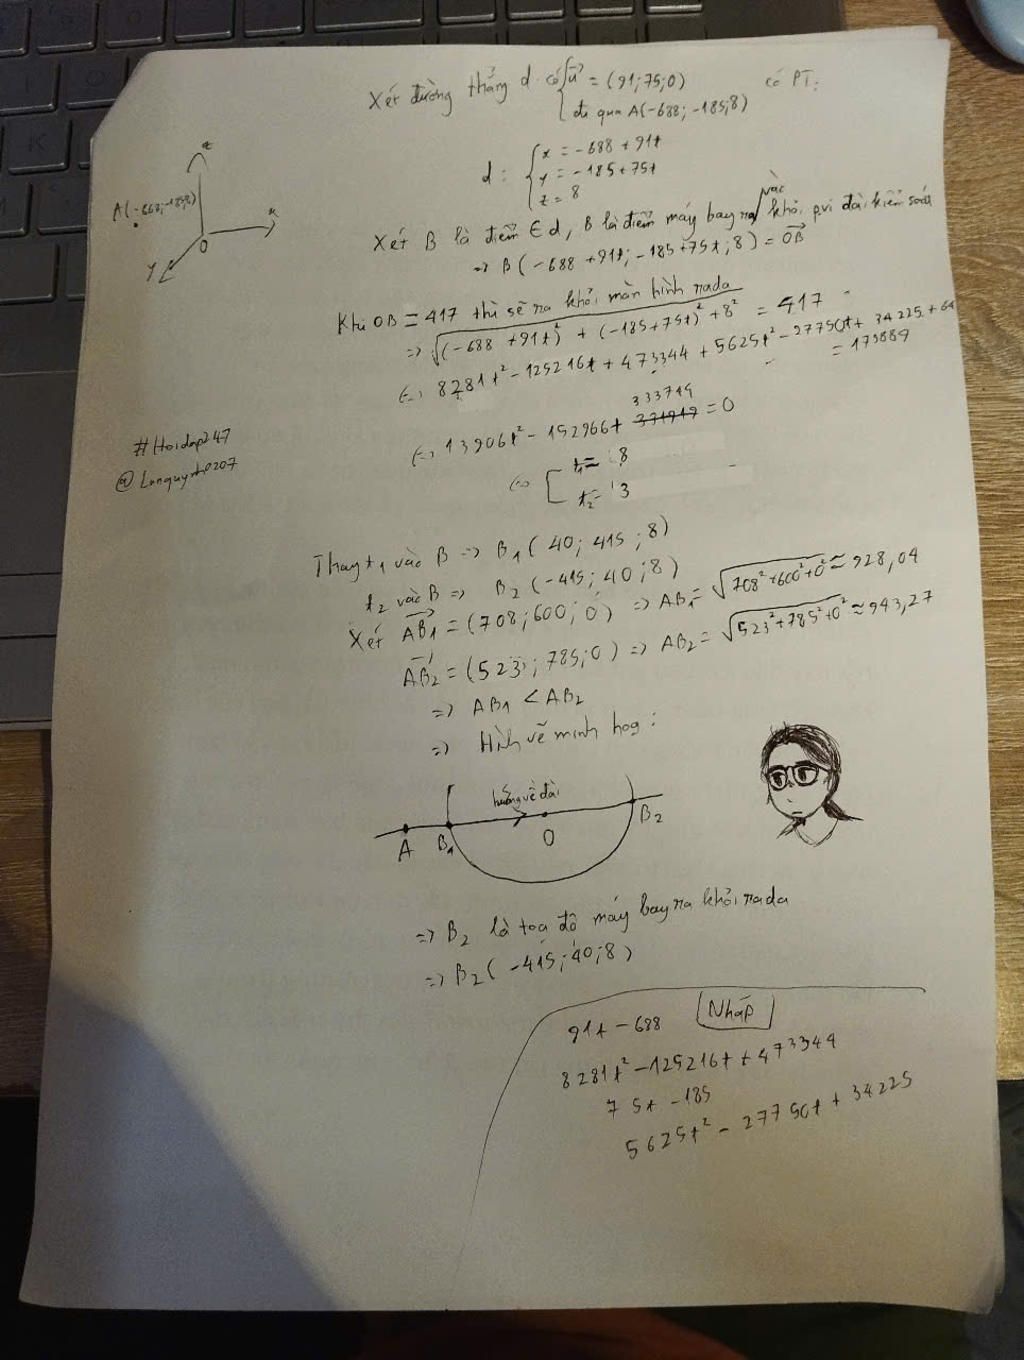 Xét đường thẳng d có { u⃗ = (91;75;0) có PT:
đi qua A(-688; -185;8)
d: { x = -688 + 91t
y = -185+75t
z = 8
z
A(-688;-185;8)
x
O
y
Xét B là điểm ∈ d, B là điểm máy bay ra/vào khỏi pvi đài kiểm soát
=> B(-688 +91t; -185+75t; 8) = OB⃗
Khi OB = 417 thì sẽ ra khỏi màn hình rada
=> √((-688 +91t)² + (-185+75t)² + 8²) = 417
<=> 8281t² - 125216t + 473344 + 5625t² - 27750t + 34225 + 64
= 173889
333744
<=> 13906t² - 152966t + 371919 = 0
#Hoidap247
@Lanquynh0207
<=> [ t₁ = 8
t₂ = 3
Thay t₁ vào B => B₁(40; 415; 8)
t₂ vào B => B₂(-415; 40; 8)
Xét AB₁⃗ = (708; 600; 0) => AB₁ = √(708²+600²+0²) ≈ 928,04
AB₂⃗ = (523; 785; 0) => AB₂ = √(523²+785²+0²) ≈ 943,27
=> AB₁ < AB₂
=> Hình vẽ minh hoạ:
hướng về đài
A B₁ O B₂
=> B₂ là toạ độ máy bay ra khỏi rada
=> B₂(-415; 40; 8)
Nháp
91t - 688
8281t² - 125216t + 473344
75t - 185
5625t² - 27750t + 34225